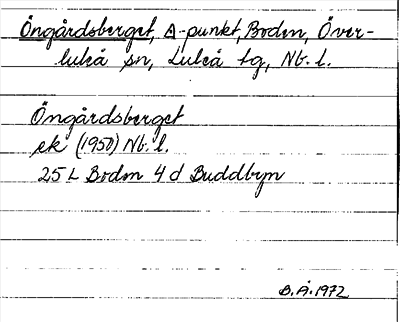 Öngårdsberget, A-punkt, Boden, Över-
luleå sn, Luleå tg, Nb. l.
Öngårdsberget
ek (1950) Nb. l.
25 L Boden 4 d Buddbyn
B.Å. 1972